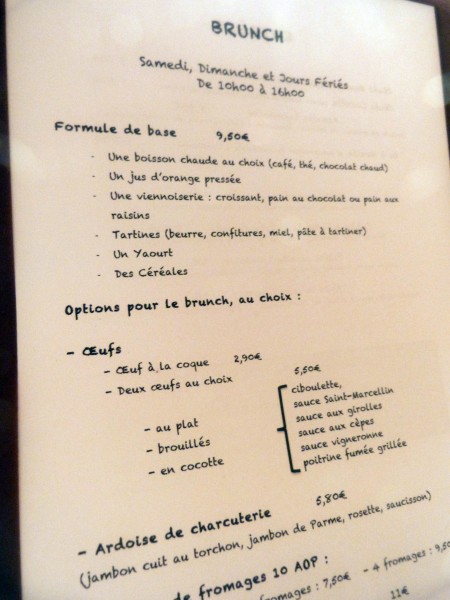 BRUNCH
Samedi, Dimanche et Jours Fériés
De 10h00 à 16h00
Formule de base 9,50€
- Une boisson chaude au choix (café, thé, chocolat chaud)
- Un jus d'orange pressée
- Une viennoiserie : croissant, pain au chocolat ou pain aux
raisins
- Tartines (beurre, confitures, miel, pâte à tartiner)
- Un Yaourt
- Des Céréales
Options pour le brunch, au choix :
- Œufs
- Œuf à la coque 2,90€
- Deux œufs au choix 5,50€
- au plat
- brouillés
- en cocotte
ciboulette,
sauce Saint-Marcellin
sauce aux girolles
sauce aux cèpes
sauce vigneronne
poitrine fumée grillée
- Ardoise de charcuterie 5,80€
(jambon cuit au torchon, jambon de Parme, rosette, saucisson)
de fromages 10 AOP :
fromages : 7,50€ - 4 fromages : 9,50
11€